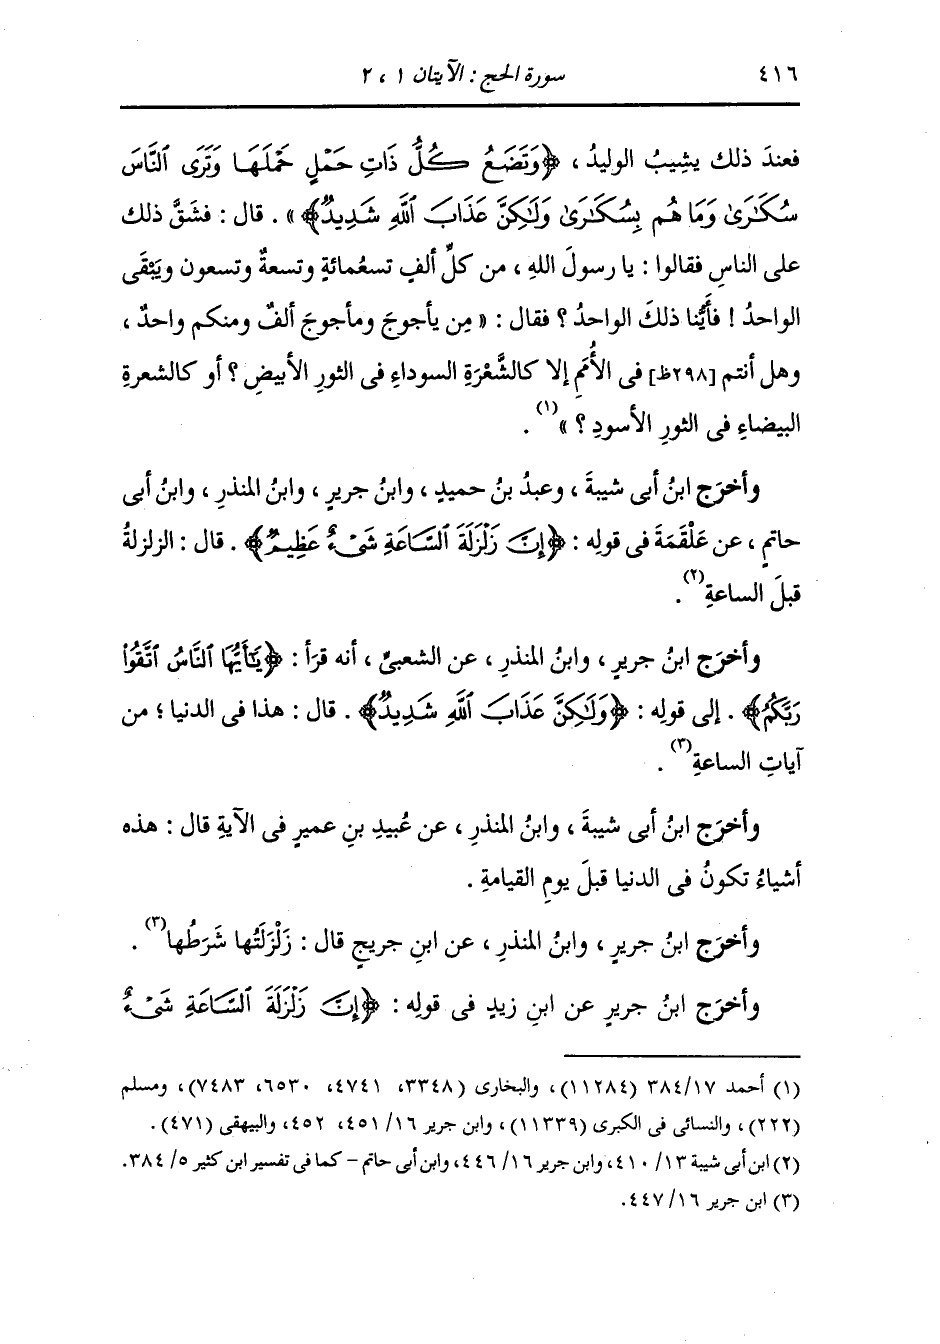 ٤١٦ سورة الحج : الآيتان ١ ، ٢
فعندَ ذلك يشيبُ الوليدُ ، ﴿وَتَضَعُ كُلُّ ذَاتِ حَمْلٍ حَمْلَهَا وَتَرَى ٱلنَّاسَ
سُكَٰرَىٰ وَمَا هُم بِسُكَٰرَىٰ وَلَٰكِنَّ عَذَابَ ٱللَّهِ شَدِيدٌ﴾ » . قال : فشَقَّ ذلك
على الناسِ فقالوا : يا رسولَ اللهِ ، من كلِّ ألفٍ تسعُمائةٍ وتسعةٌ وتسعون ويَبْقَى
الواحدُ ! فأَيُّنا ذلكَ الواحدُ ؟ فقال : « مِن يأجوجَ ومأجوجَ ألفٌ ومنكم واحدٌ ،
وهل أنتم [٢٩٨ظ] فى الأُممِ إلا كالشَّعْرَةِ السوداءِ فى الثورِ الأبيضِ ؟ أو كالشعرةِ
البيضاءِ فى الثورِ الأسودِ ؟ »(١) .
وأخرَج ابنُ أبى شيبةَ ، وعبدُ بنُ حميدٍ ، وابنُ جريرٍ ، وابنُ المنذرِ ، وابنُ أبى
حاتمٍ ، عن عَلْقَمَةَ فى قولِه : ﴿إِنَّ زَلْزَلَةَ ٱلسَّاعَةِ شَىْءٌ عَظِيمٌ﴾ . قال : الزلزلةُ
قبلَ الساعةِ(٢) .
وأخرَج ابنُ جريرٍ ، وابنُ المنذرِ ، عن الشعبىِّ ، أنه قرَأ : ﴿يَٰٓأَيُّهَا ٱلنَّاسُ ٱتَّقُوا۟
رَبَّكُمْ﴾ . إلى قولِه : ﴿وَلَٰكِنَّ عَذَابَ ٱللَّهِ شَدِيدٌ﴾ . قال : هذا فى الدنيا ؛ من
آياتِ الساعةِ(٣) .
وأخرَج ابنُ أبى شيبةَ ، وابنُ المنذرِ ، عن عُبيدِ بنِ عميرٍ فى الآيةِ قال : هذه
أشياءُ تكونُ فى الدنيا قبلَ يومِ القيامةِ .
وأخرَج ابنُ جريرٍ ، وابنُ المنذرِ ، عن ابنِ جريجٍ قال : زَلْزَلَتُها شَرَطُها(٣) .
وأخرَج ابنُ جريرٍ عن ابنِ زيدٍ فى قولِه : ﴿إِنَّ زَلْزَلَةَ ٱلسَّاعَةِ شَىْءٌ
(١) أحمد ٣٨٤/١٧ (١١٢٨٤)، والبخارى (٣٣٤٨، ٤٧٤١، ٦٥٣٠، ٧٤٨٣)، ومسلم
(٢٢٢)، والنسائى فى الكبرى (١١٣٣٩)، وابن جرير ١٦/ ٤٥١، ٤٥٢، والبيهقى (٤٧١) .
(٢) ابن أبى شيبة ١٣/ ٤١٠، وابن جرير ١٦/ ٤٤٦، وابن أبى حاتم – كما فى تفسير ابن كثير ٥/ ٣٨٤.
(٣) ابن جرير ١٦/ ٤٤٧.